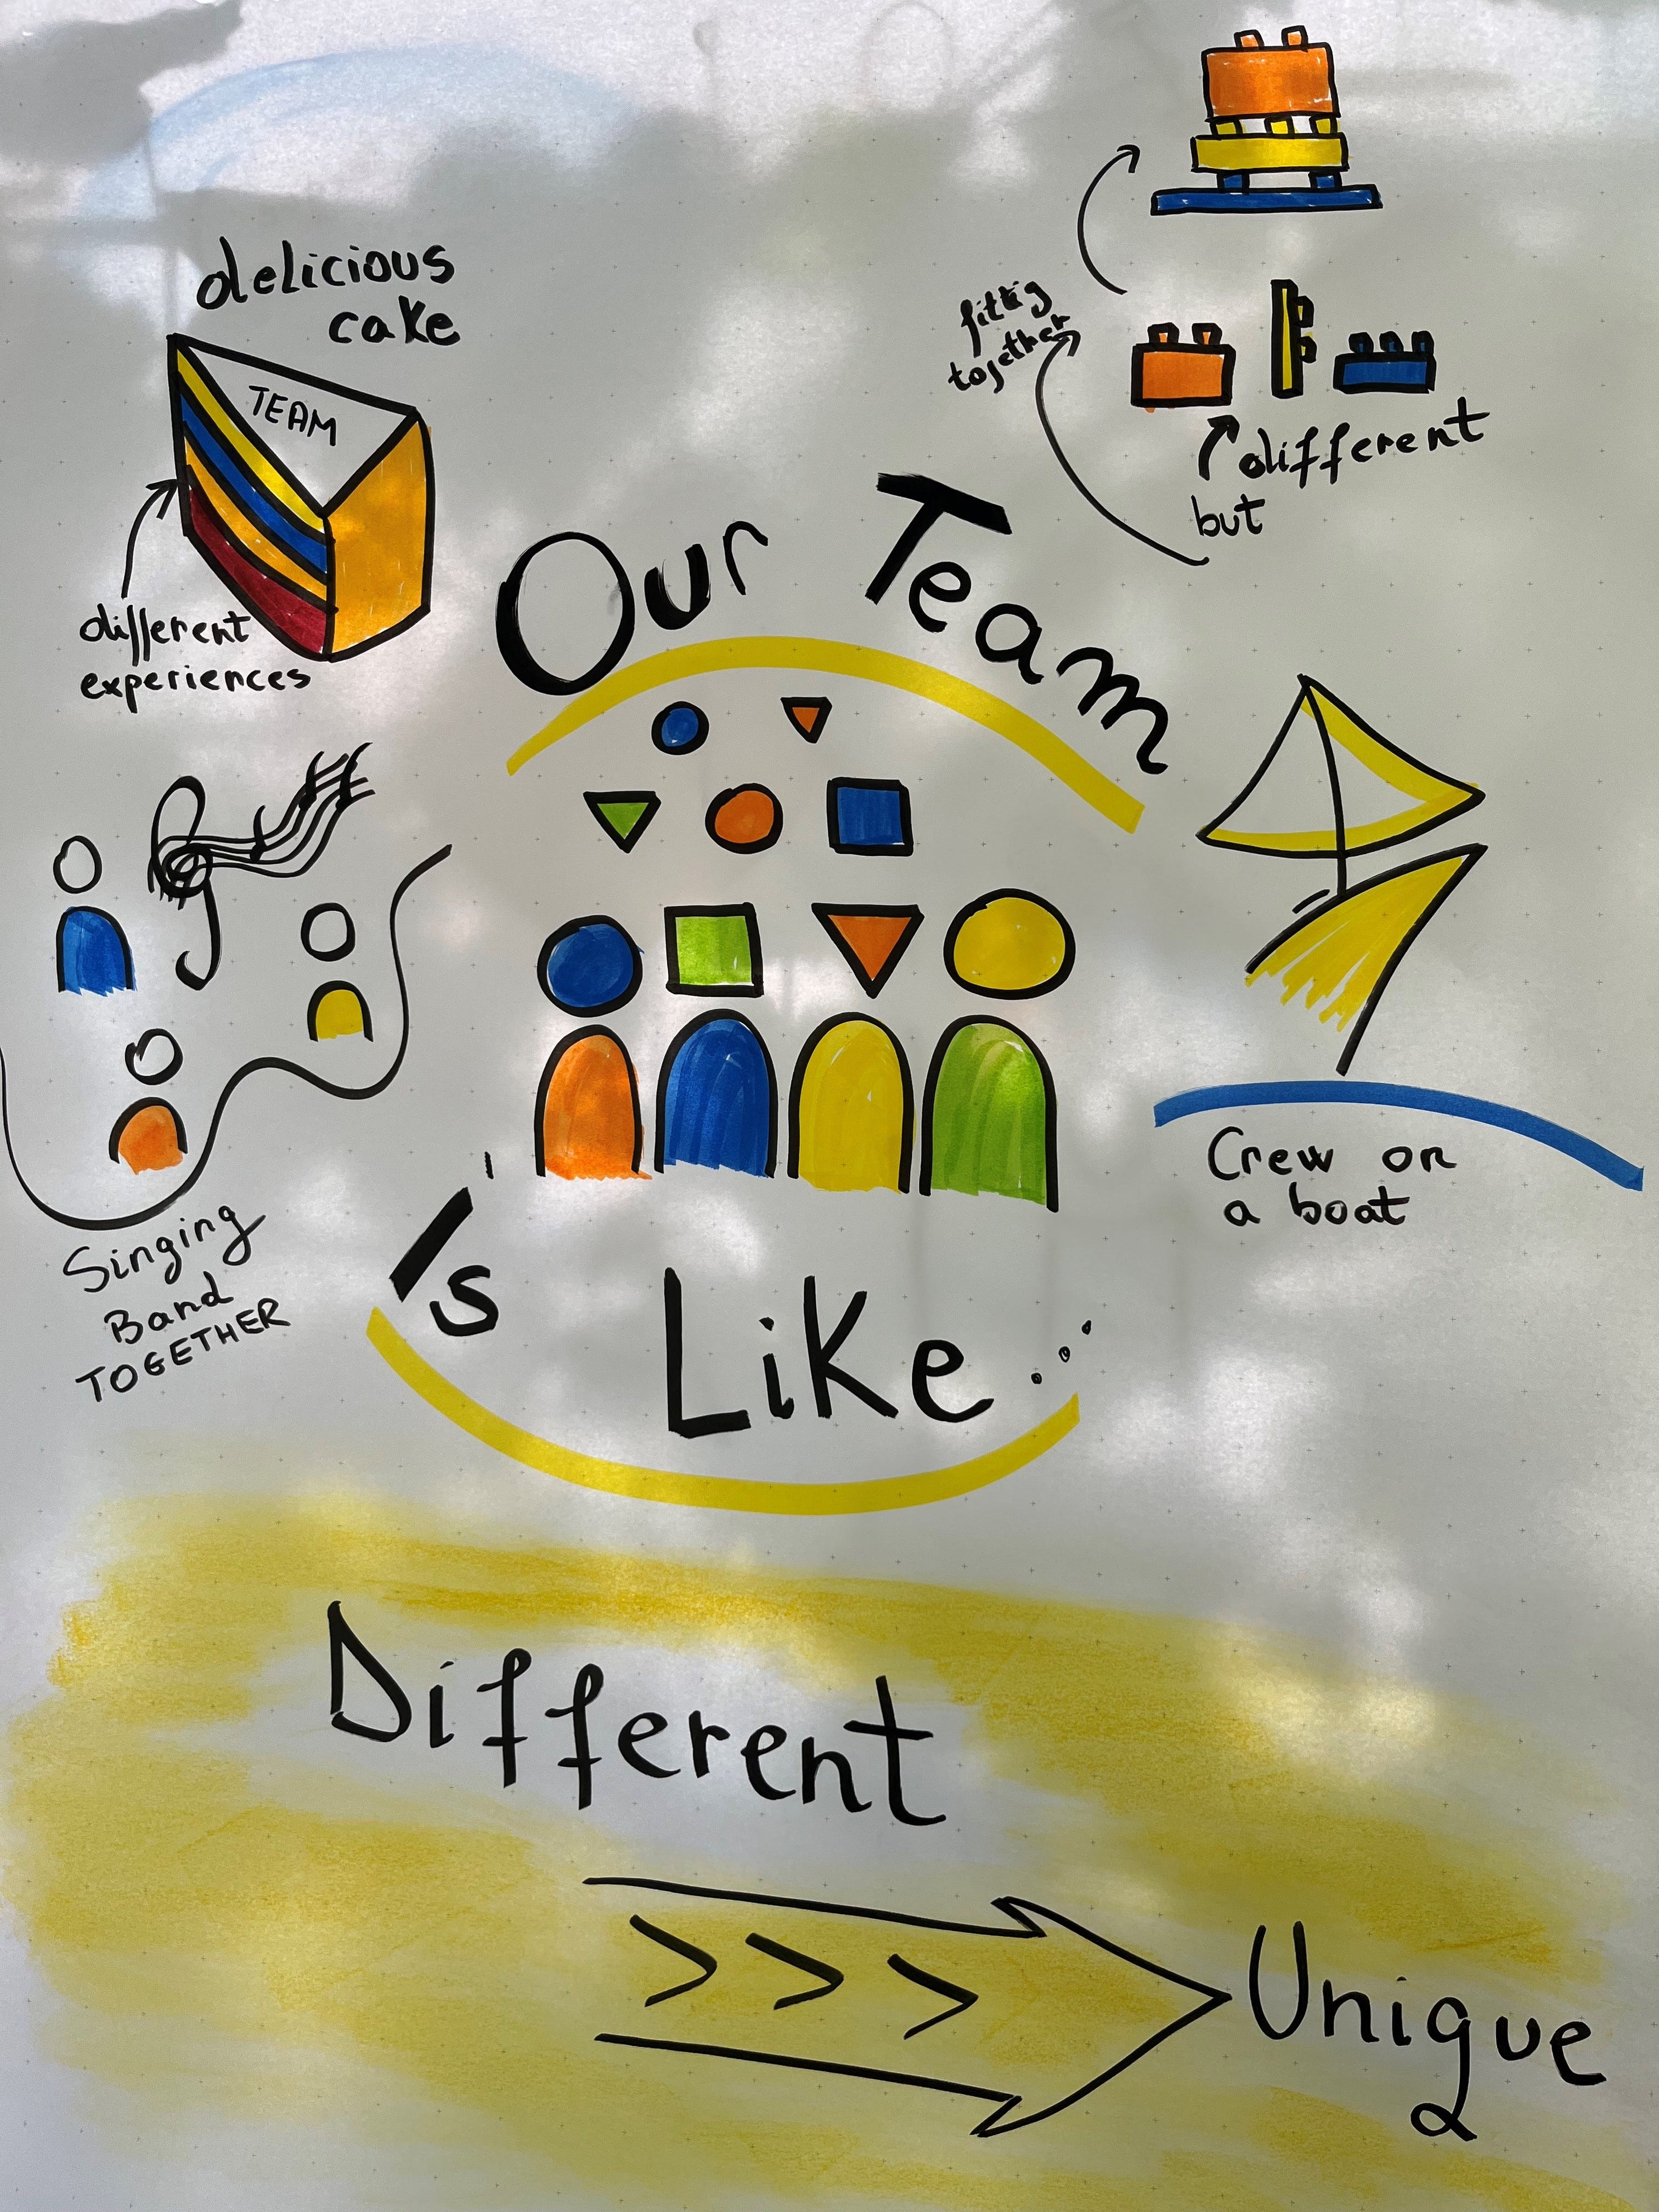 delicious
cake
TEAM
different
experiences
fittig
together
different
but
Our Team
Singing
Band
TOGETHER
Crew on
a boat
Is Like...
Different
>>>
Unique